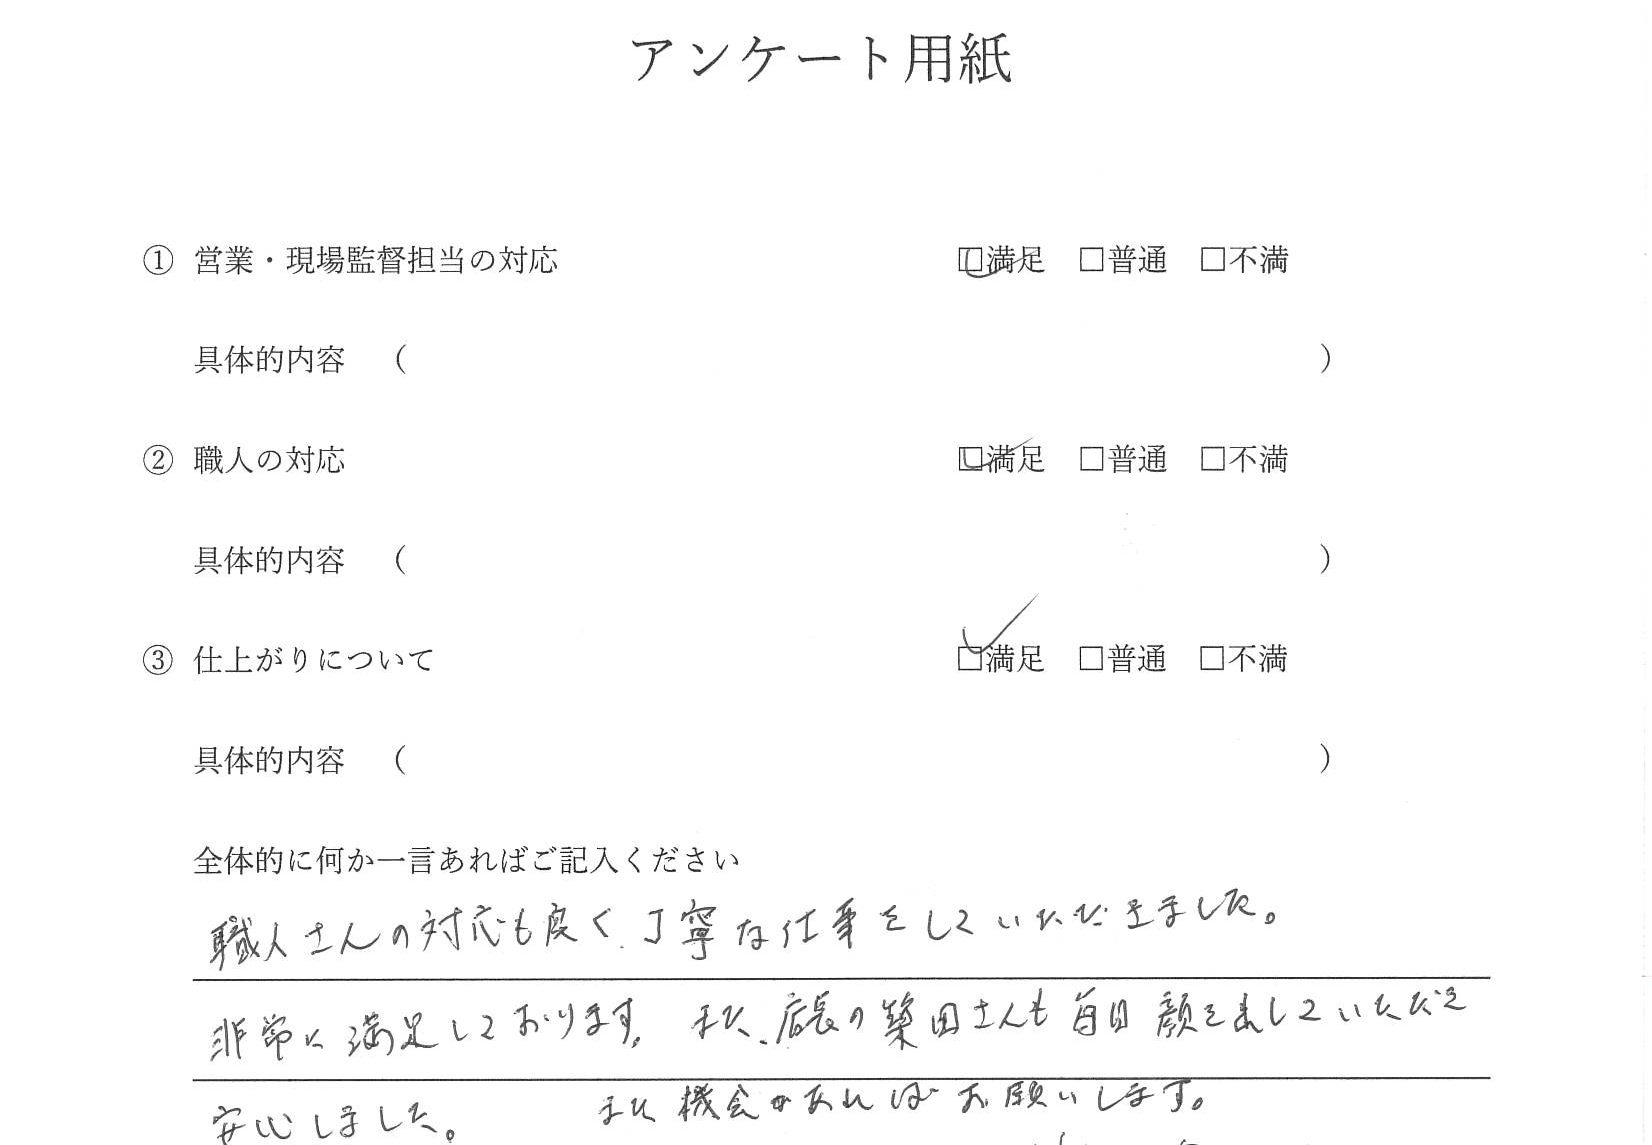 アンケート用紙
① 営業・現場監督担当の対応 □満足 □普通 □不満
具体的内容 （ ）
② 職人の対応 □満足 □普通 □不満
具体的内容 （ ）
③ 仕上がりについて □満足 □普通 □不満
具体的内容 （ ）
全体的に何か一言あればご記入ください
職人さんの対応も良く、丁寧な仕事をしていただきました。
非常に満足しております。また、店長の築田さんも毎日顔を出していただき
安心しました。 また機会があればお願いします。